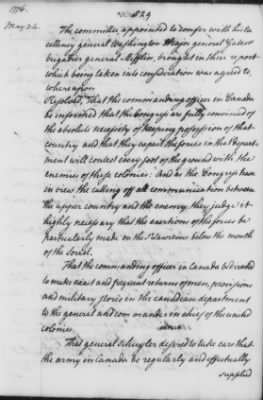 1776.
529
May 24.
The committee appointed to confer with his Ex
cellency general Washington Major general Gates &
brigadier general Mifflin, brought in their report
which being taken into consideration was agreed to,
whereupon
Resolved, That the commanding officer in Canada
be informed that the Congress are fully convinced of
the absolute necessity of keeping possession of that
country and that they expect the forces in that Depart
ment will contest every foot of the ground with the
enemies of these colonies: and as the Congress have
in view the cutting off all communication between
the upper country and the enemy, they judge it
highly necessary that the exertions of the forces be
particularly made on the St Lawrence below the mouth
of the Sorel.
That the commanding officer in Canada be directed
to make exact and frequent returns of men, provisions
and military stores in the canadian department
to the general and commander in chief of the united
colonies.
That general Schuyler desired to take care that
the army in Canada be regularly and effectually
supplied